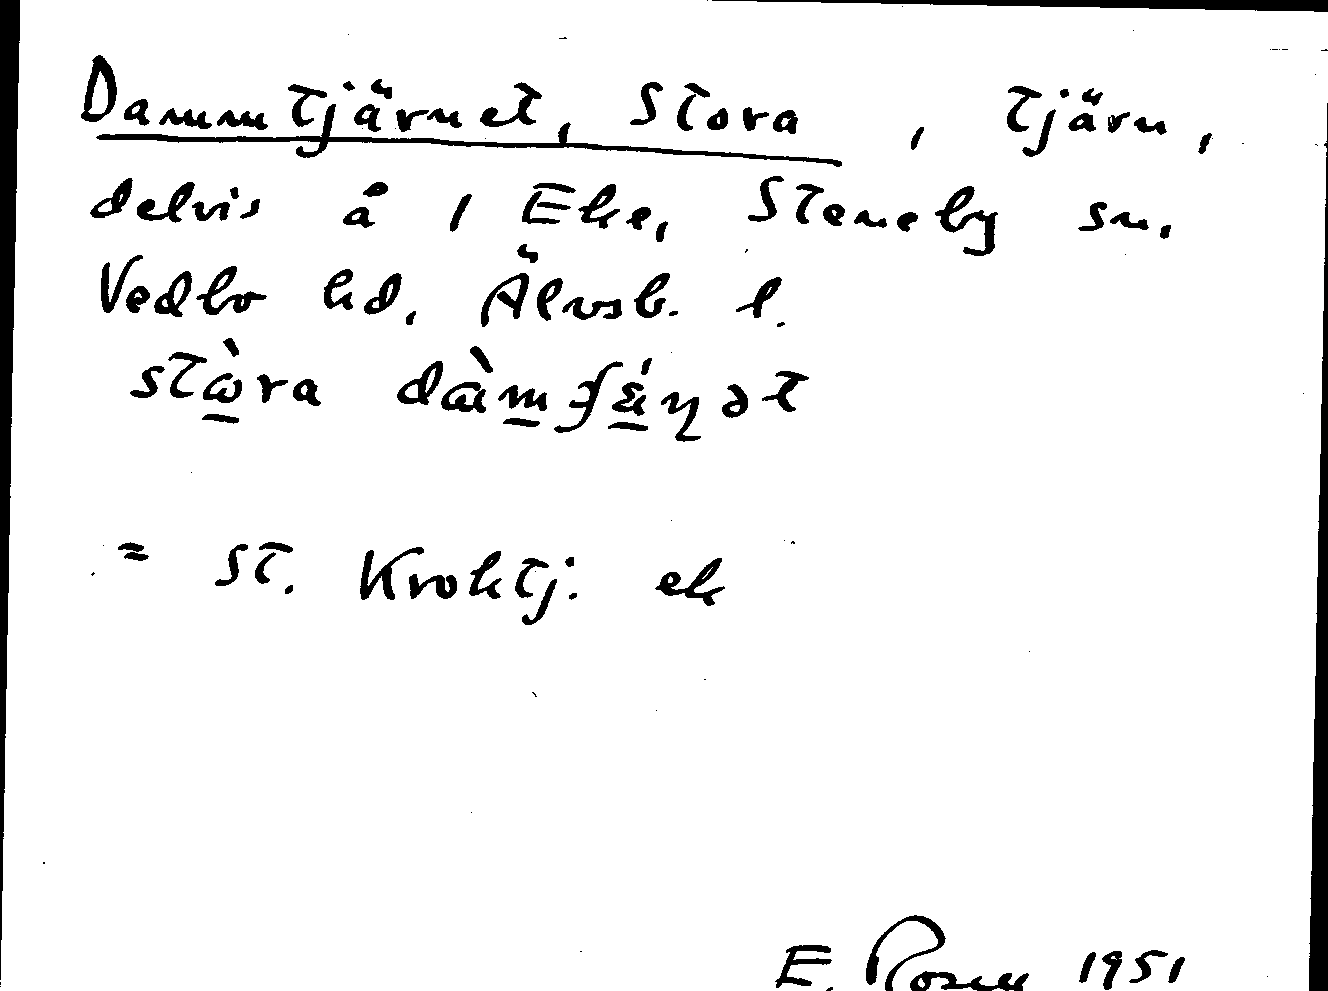 Dammtjärnet, Stora, tjärn,
delvis å 1 Eke, Steneby sn.
Vedbo hd. Älvsb. l.
stὼra
= St. Kroktj. ek
E. Rosen 1951